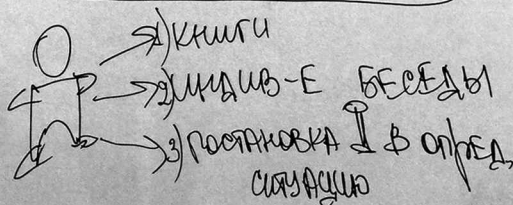 1) КНИГИ
2) ИНДИВ-Е БЕСЕДЫ
3) ПОСТАНОВКА В ОПРЕД.
СИТУАЦИЮ